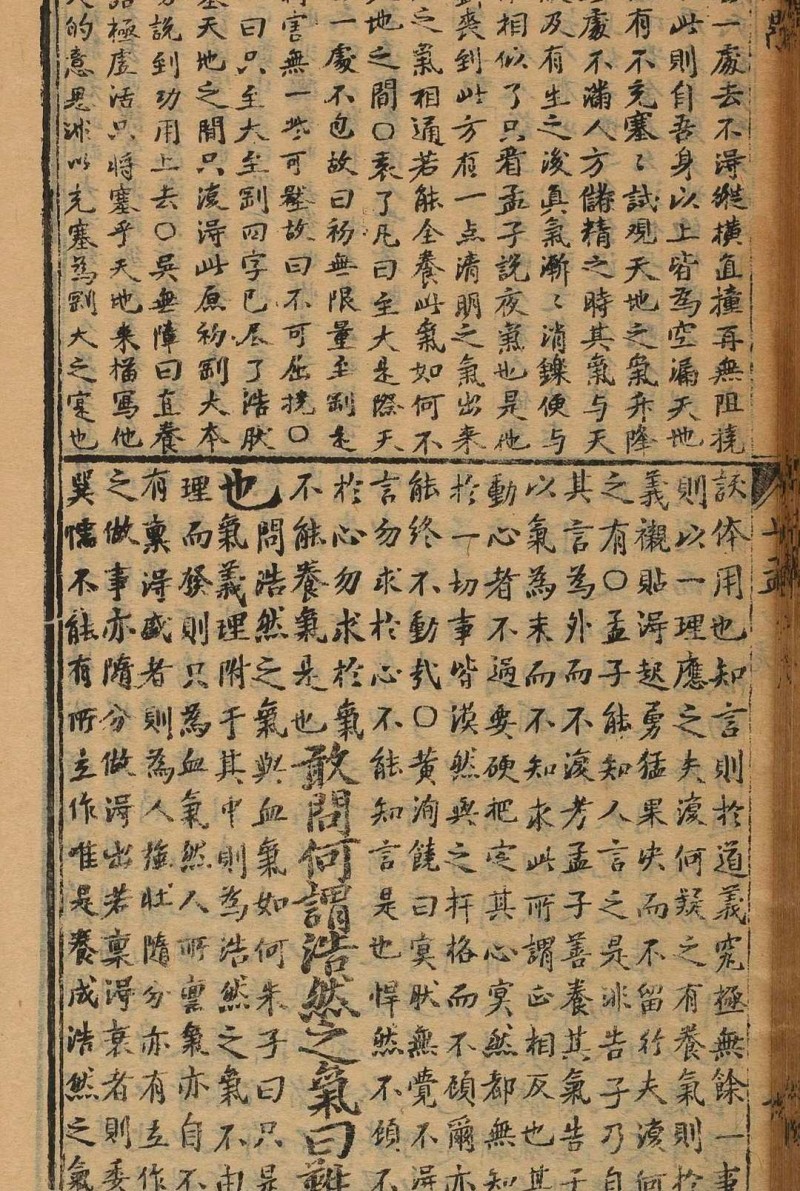 一處去不得縱橫直撞再無阻撓
此則自吾身以上皆為空漏天地
有不充塞〻試观天地之氣升降
處不滿人方儲精之時其氣与天
及有生之後真氣漸〻消鑠便与
相似了只看孟子說夜氣也是他
喪到此方有一点清明之氣出来
之氣相通若能全養此氣如何不
地之間〇袁了凡曰至大是際天
一處不包故曰初無限量至剛是
害無一些可歉故曰不可屈撓〇
曰只至大至剛四字已尽了浩肰
塞天地之間只復得此原初剛大本
說到功用上去〇吳無障曰直養
極虛活只將塞乎天地来描寫他
的意思非以充塞為剛大之寔也
談体用也知言則於道義究極無餘一事
則以一理應之夫復何疑之有養氣則於
義襯貼得起勇猛果决而不留行夫復何
之有〇孟子能知人言之是非告子乃自
其言為外而不復考孟子善養其氣告子
以氣為末而不知求此所謂正相反也其
動心者不過要硬把定其心冥然都無知
於一切事皆漠然與之扞格而不頋爾亦
能終不動㢤〇黄洵饒曰冥肰無覺不得
言勿求於心不能知言是也悍然不頋不
於心勿求於氣
不能養氣是也敢問何謂浩然之氣曰難
也問浩然之氣與血氣如何朱子曰只是
氣義理附于其中則為浩然之氣不由
理而發則只為血氣然人所禀氣亦自不
有禀得盛者則為人強壯隨分亦有立作
之做事亦隨分做得出若禀得衰者則委
巽懦不能有所立作唯是養成浩然之氣